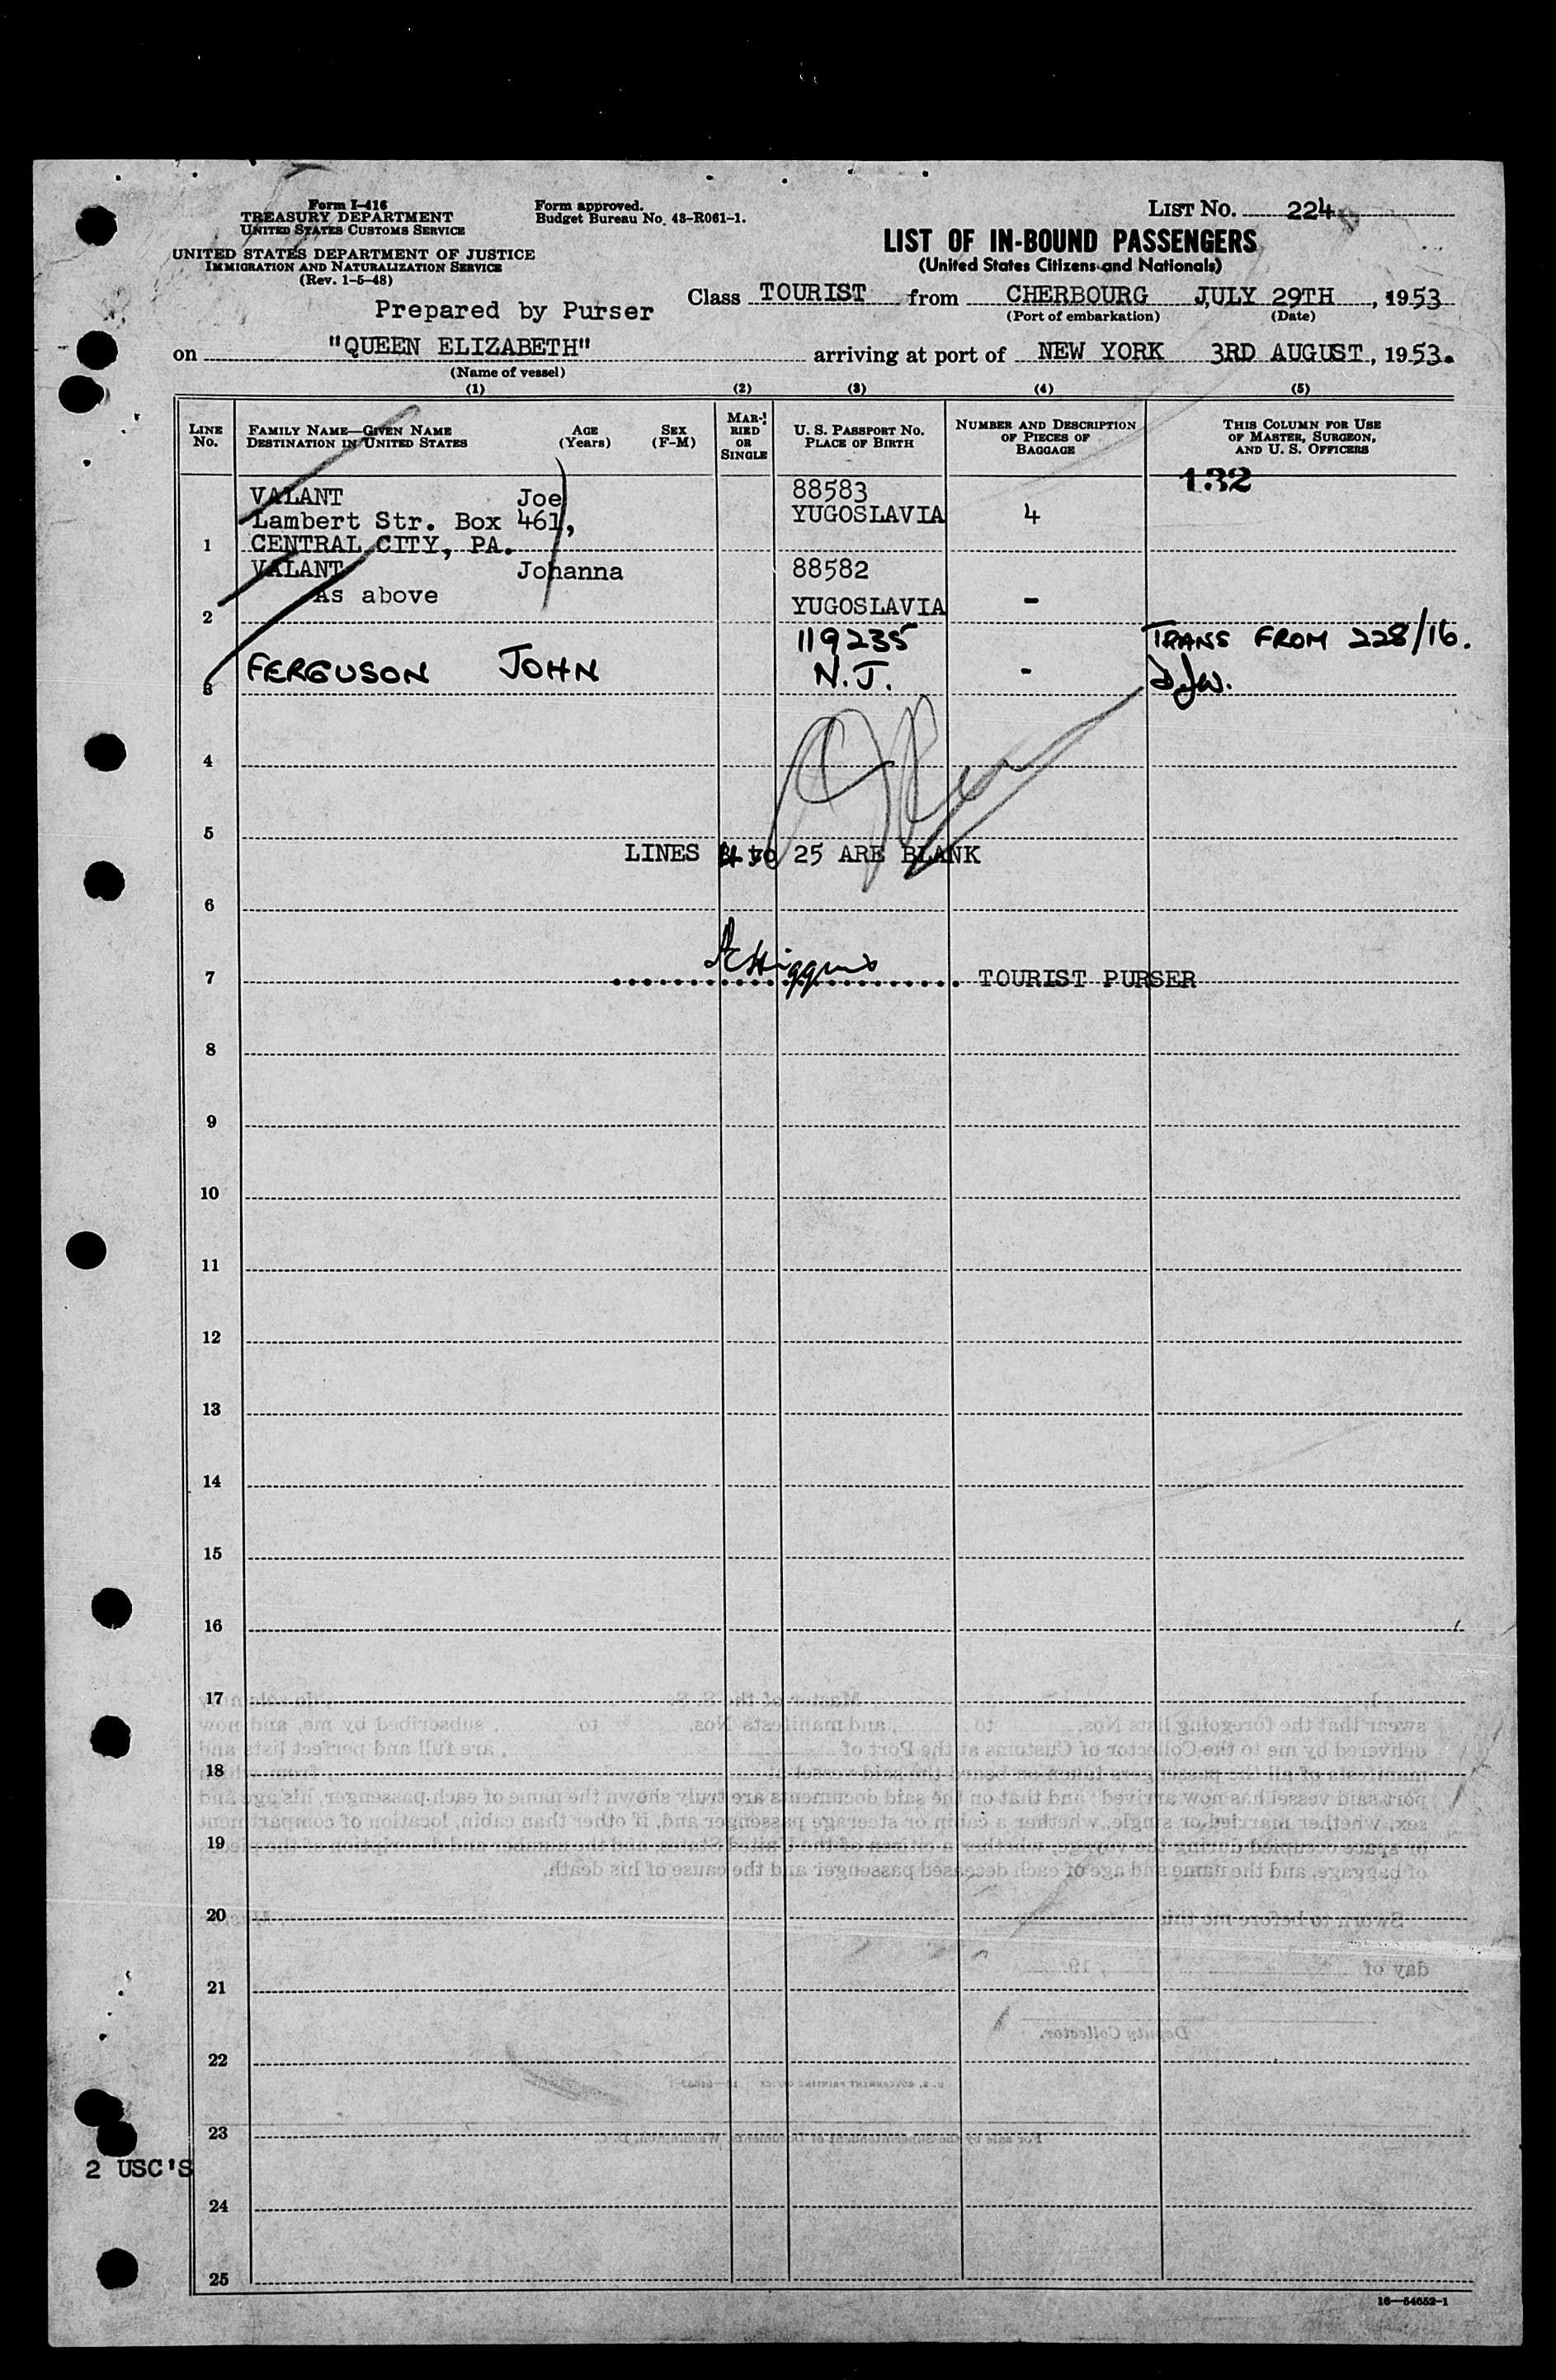 Form I-416
TREASURY DEPARTMENT
UNITED STATES CUSTOMS SERVICE
UNITED STATES DEPARTMENT OF JUSTICE
IMMIGRATION AND NATURALIZATION SERVICE
(Rev. 1-5-48)
Form approved.
Budget Bureau No. 43-R061-1.
LIST NO. 224
LIST OF IN-BOUND PASSENGERS
(United States Citizens and Nationals)
Prepared by Purser
Class TOURIST from CHERBOURG JULY 29TH, 1953
(Port of embarkation) (Date)
on "QUEEN ELIZABETH" arriving at port of NEW YORK 3RD AUGUST, 1953.
(Name of vessel)
(1) (2) (3) (4) (5)
LINE No. FAMILY NAME—GIVEN NAME DESTINATION IN UNITED STATES AGE (Years) SEX (F-M) MARRIED OR SINGLE U. S. PASSPORT NO. PLACE OF BIRTH NUMBER AND DESCRIPTION OF PIECES OF BAGGAGE THIS COLUMN FOR USE OF MASTER, SURGEON, AND U. S. OFFICERS
132
VALANT Joe 88583
Lambert Str. Box 461, YUGOSLAVIA 4
1 CENTRAL CITY, PA.
VALANT Johanna 88582
As above
2 YUGOSLAVIA -
119235 TRANS FROM 228/16.
3 FERGUSON JOHN N.J. - DJW.
4
5
LINES 4 to 25 ARE BLANK
6
7 TOURIST PURSER
8
9
10
11
12
13
14
15
16
17
18
19
20
21
22
23
2 USC'S
24
25
16—54652-1